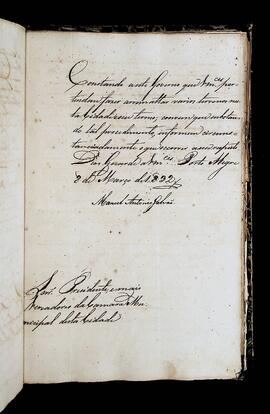 Constando a este Governo que Vm.ces per-
tendem fazer arrematar varios terrenos nes-
ta Cidade e seu termo, convem que sobre
de tal procedimento, informem circuns-
tanciadamente o que occorre a esse respeito
Deos Guarde a Vm.ces Porto Alegre
8 de Março de 1832
Manoel Antonio Galvão
Snr.s Presidente, e mais
Vereadores da Camara Mu-
nicipal desta Cidade